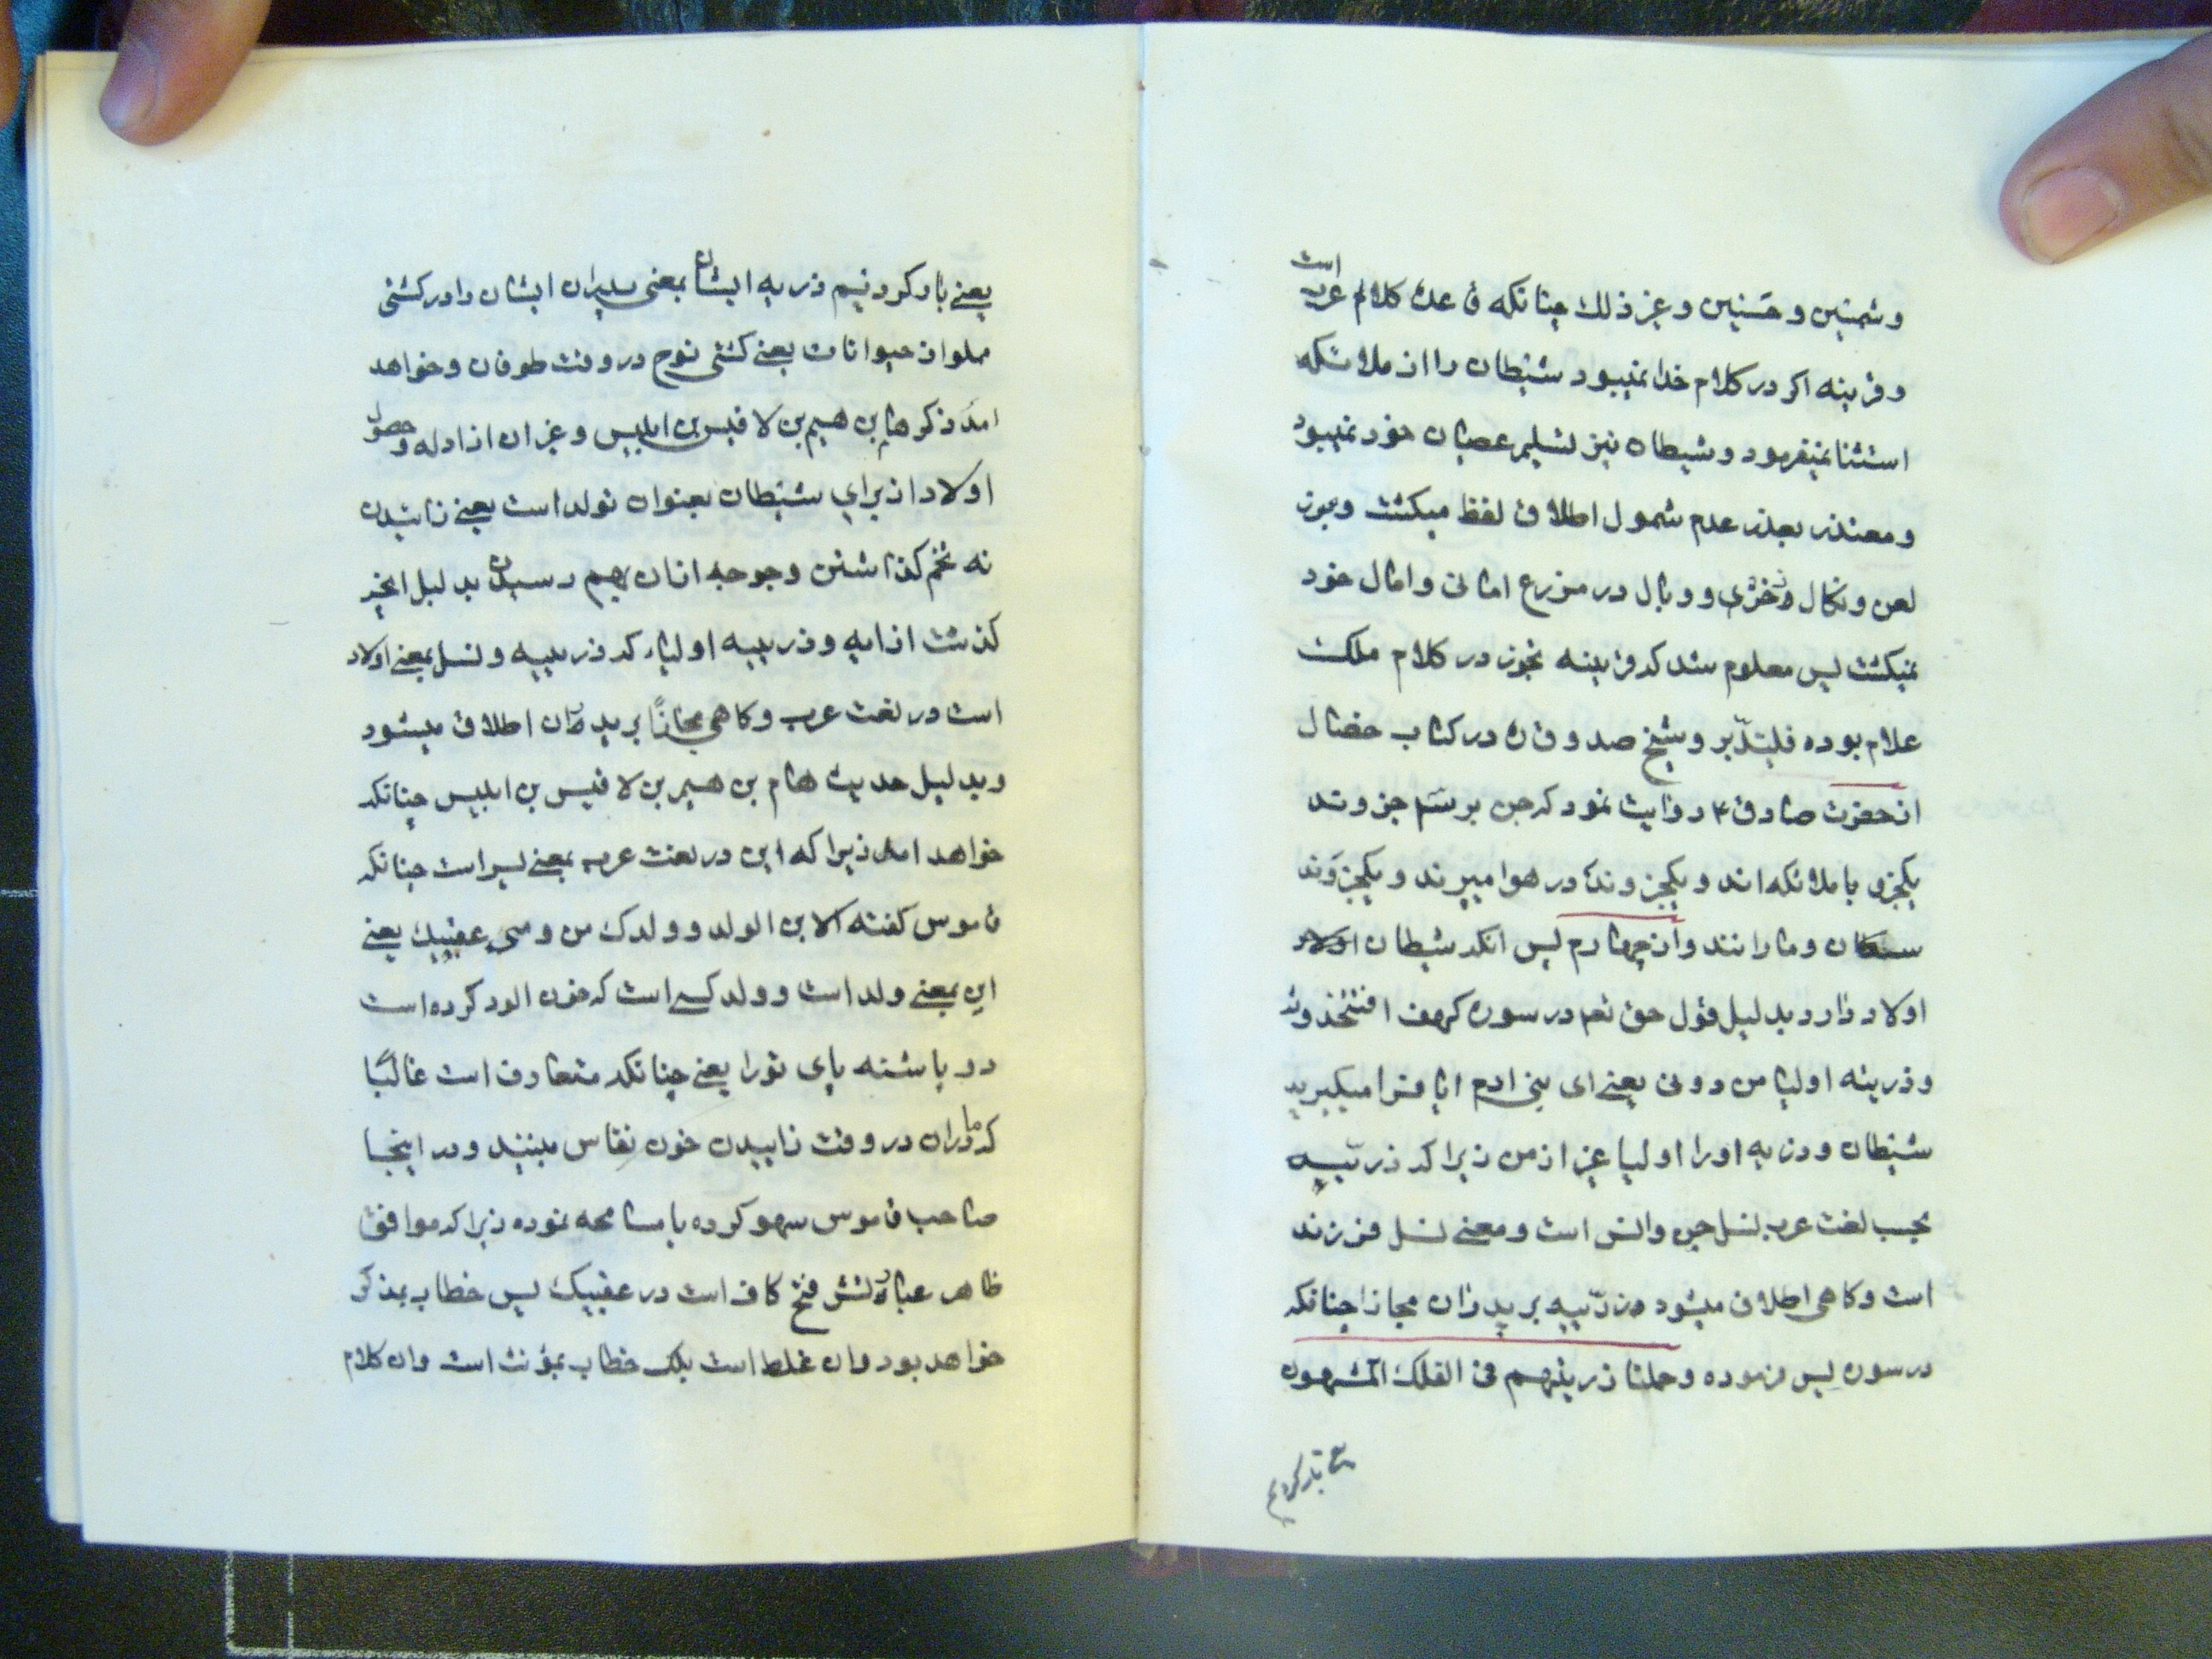 وشمسین و حسنین و غیر ذلک چنانکه قاعدۀ کلام عرب است
و قرینه اکر در کلام خدا نمیبود شیطان را از ملائکه
استثنا نمیفرمود و شیطان نیز تسلیم عصیان خود نمیبود
و معتذر بعذر عدم شمول اطلاق لفظ میکشت
لعن و نکال و خزی و وبال در مزرع امانی و امال خود
نمیکشت پس معلوم شد که قرینه تجوز در کلام ملک
علام بوده فلیتدبر و شیخ صدوق ره در کتاب خصال
از حضرت صادق ۴ روایت نمود که جن بر سه جزوند
یکجزء با ملائکه اند و یکجزوند در هوا میپرند و یکجزوند
سکان و مارانند و از چهارم پس انکه شیطان
اولاد دارد بدلیل قول حق تعم در سوره کهف افتتخذونه
و ذریته اولیا من دونی یعنی ای بنی ادم ایا فرا میکیرید
شیطان و ذریه او را اولیا غیر از من زیرا که ذریّه
بحسب لغت عرب نسل جن و انس است و معنی نسل فرزند
است و کاهی اطلاق میشود ذرّیه بر پدران مجازا چنانکه
در سوره یس فرموده و حملنا ذریتهم فی الفلک المشحون
یعنی بار کردیم
یعنی بار کردنیم ذریه ایشان بمعنی پدران ایشان را در کشتی
مملو از حیوانات یعنی کشتی نوح در وقت طوفان و خواهد
امد ذکر هام بن هیم بن لاقیس بن ابلیس و غیر ان از ادله و حصول
اولاد از برای شیطان بعنوان تولد است یعنی زائیدن
نه تخم کذاشتن و جوجه ازان بهم رسیدن بدلیل انچه
کذشت از ایه و ذریته اولیاء که ذریه و نسل بمعنی اولاد
است در لغت عرب و کاهی مجازاً بر پدران اطلاق میشود
و بدلیل حدیث هام بن هیم بن لاقیس بن ابلیس چنانکه
خواهد امد زیرا که ابن در لغت عرب بمعنی پسر است چنانکه
قاموس کفته الابن الولد و ولدک من دمی عقبیک یعنی
ابن بمعنی ولد است و ولد کسی است که خون الود کرده است
دو پاشنه پای تو را یعنی چنانکه متعارف است غالبًا
که مادران در وقت زاییدن خون نفاس ببینند و در اینجا
صاحب قاموس سهو کرده یا مسامحه نموده زیرا که موافق
ظاهر عبارتش فتح کاف است در عقبیک پس خطاب بمذکر
خواهد بود و ان غلط است بلکه خطاب بمؤنث است و ان کلام